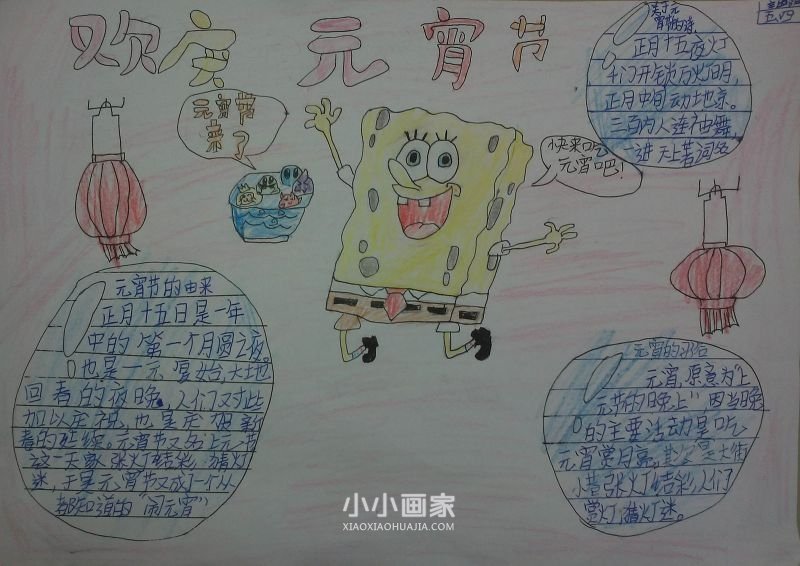 欢庆元宵节
元宵节
来了
快来吃
元宵吧!
关于元
宵节的诗
正月十五夜灯
千门开锁万灯明,
正月中旬动地京。
三百内人连袖舞,
一进天上著词名
元宵节的由来
正月十五日是一年
中的第一个月圆之夜。
也是一元复始,大地
回春的夜晚,人们对此
加以庆祝,也是庆祝新
春的延续。元宵节又名上元节
这一天家张灯结彩,猜灯
迷,于是元宵节又成了个人
都知道的"闹元宵"
元宵的
元宵,原意为"上
元节的晚上",因当晚
的主要活动是吃
元宵赏月亮,其次是大街
小巷张灯结彩,人们
赏灯,猜灯迷。
小小画家
XIAOXIAOHUAJIA.COM